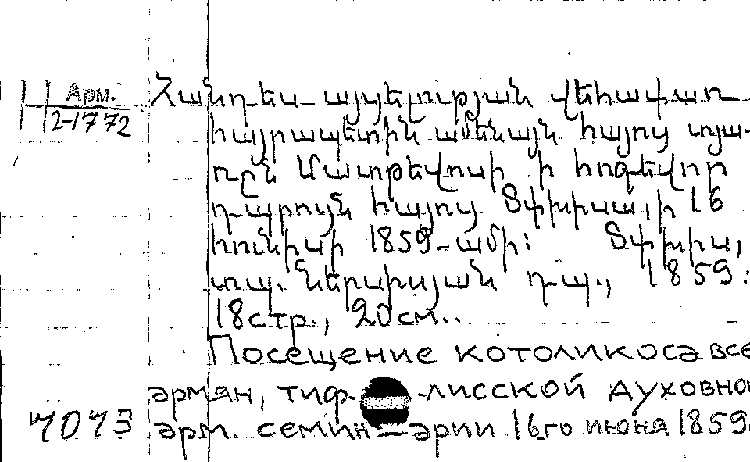 Арм.
2-1772
Հանդես այցելության վեհափառ
հայրապետին ամենայն հայոց տյա-
ռըն Մատթեվոսի ի հոգեվոր
դպրոցն հայոց Տփխիսա, ի 16
հունիսի 1859-ամի: Տփխիս,
տպ. Ներսիսյան դպ., 1859:
18стр., 20см..
Посещение котоликоса все
армян, тиф-лисской духовно
7073 арм. семин-арии 16го июня 1859.